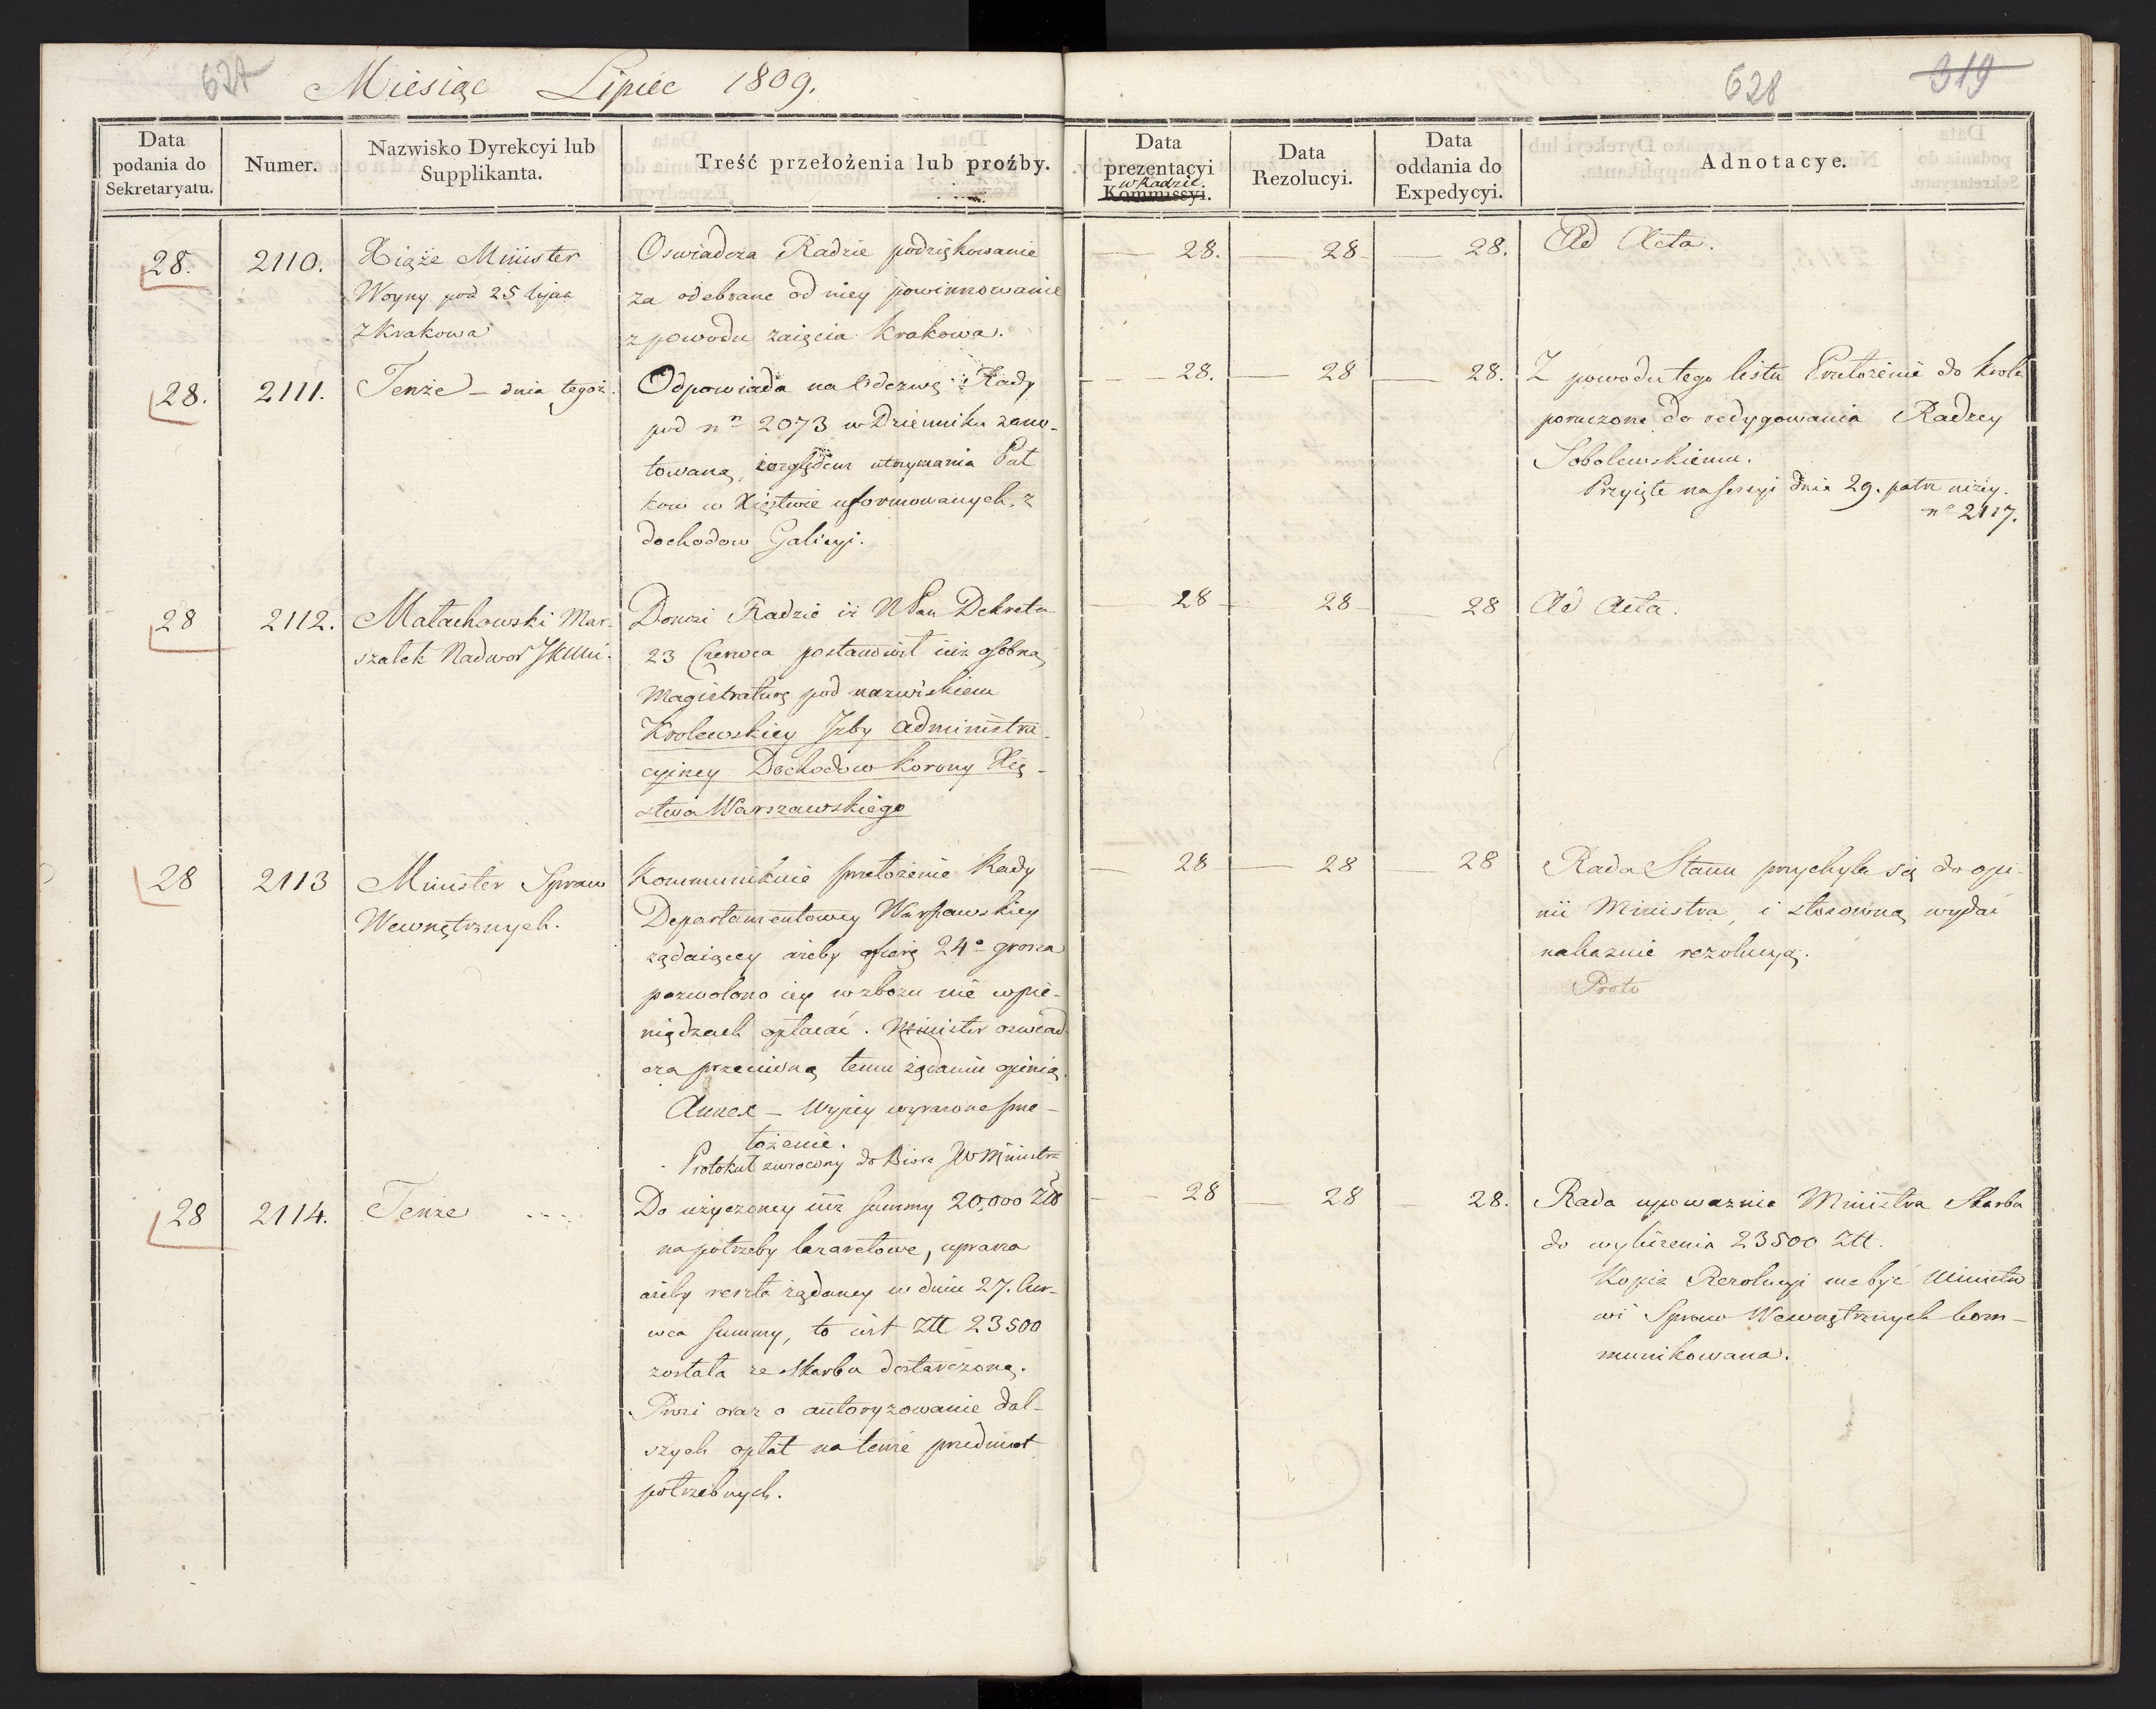 627 Miesiąc Lipiec 1809.
628 319
Data podania do Sekretaryatu.
Numer.
Nazwisko Dyrekcyi lub Supplikanta.
Treść przełożenia lub proźby.
Data prezentacyi w Radzie. Kommissyi.
Data Rezolucyi.
Data oddania do Expedycyi.
Adnotacye.
28. 2110.
Xiąże Minister
Woyny pod 25 lipca
z Krakowa
Oswiadcza Radzie podziękowanie
za odebrane od niey powinnowanie
z powodu zaięcia Krakowa.
28. 28 28.
Ad Acta.
28. 2111.
Tenże – dnia tegoż.
Odpowiada na Odezwę Rady
pod nº 2073 w Dzienniku zano-
towaną, względem utrzymania Puł
kow w Xięstwie uformowanych, z
dochodow Galicyi.
28. 28 28.
Z powodu tego listu Przełożenie do Krola
poruczone do redygowania Radzcy
Sobolewskiemu.
Przyięte na sessyi dnia 29. patrz niżey.
nº 2117.
28 2112.
Małachowski Mar-
szałek Nadwor JKMci.
Donosi Radzie iż NPan Dekretem
23 Czerwca postanowił iuż osobną
Magistraturę pod nazwiskiem
Krolewskiey Izby administra-
cyiney Dochodow Korony Xię-
stwa Warszawskiego
28 28 28
Ad Acta.
28 2113
Minister Spraw
Wewnętrznych.
Kommunikuie przełożenie Rady
Departamentowey Warszawskiey
żądaiącey ażeby ofiarę 24º grosza
pozwolono iey w zbożu nie w pie-
niądzach opłacać. Minister oswiad
cza przeciwną temu żądaniu opinią.
Annex – Wyżey wyrażone prze-
łożenie.
Protokuł zwrocony do Biora JW Ministra
28 28 28
Rada Stanu przychyla się do opi-
nii Ministra, i stosowną wydać
nakazuie rezolucyą.
Proto
28 2114.
Tenże
Do użyczoney iuż summy 20,000 Złł
na potrzeby lazaretowe, uprasza
ażeby reszta żądaney w dniu 27. Czer-
wca summy, to iest Złł 23500
została ze Skarbu dostarczoną.
Prosi oraz o autoryzowanie dal-
szych opłat na tenże przedmiot
potrzebnych.
28 28 28.
Rada upoważnia Ministra Skarbu
do wyliczenia 23500 Złł.
Kopia Rezolucyi ma być Ministro
wi Spraw Wewnętrznych kom-
munikowana.